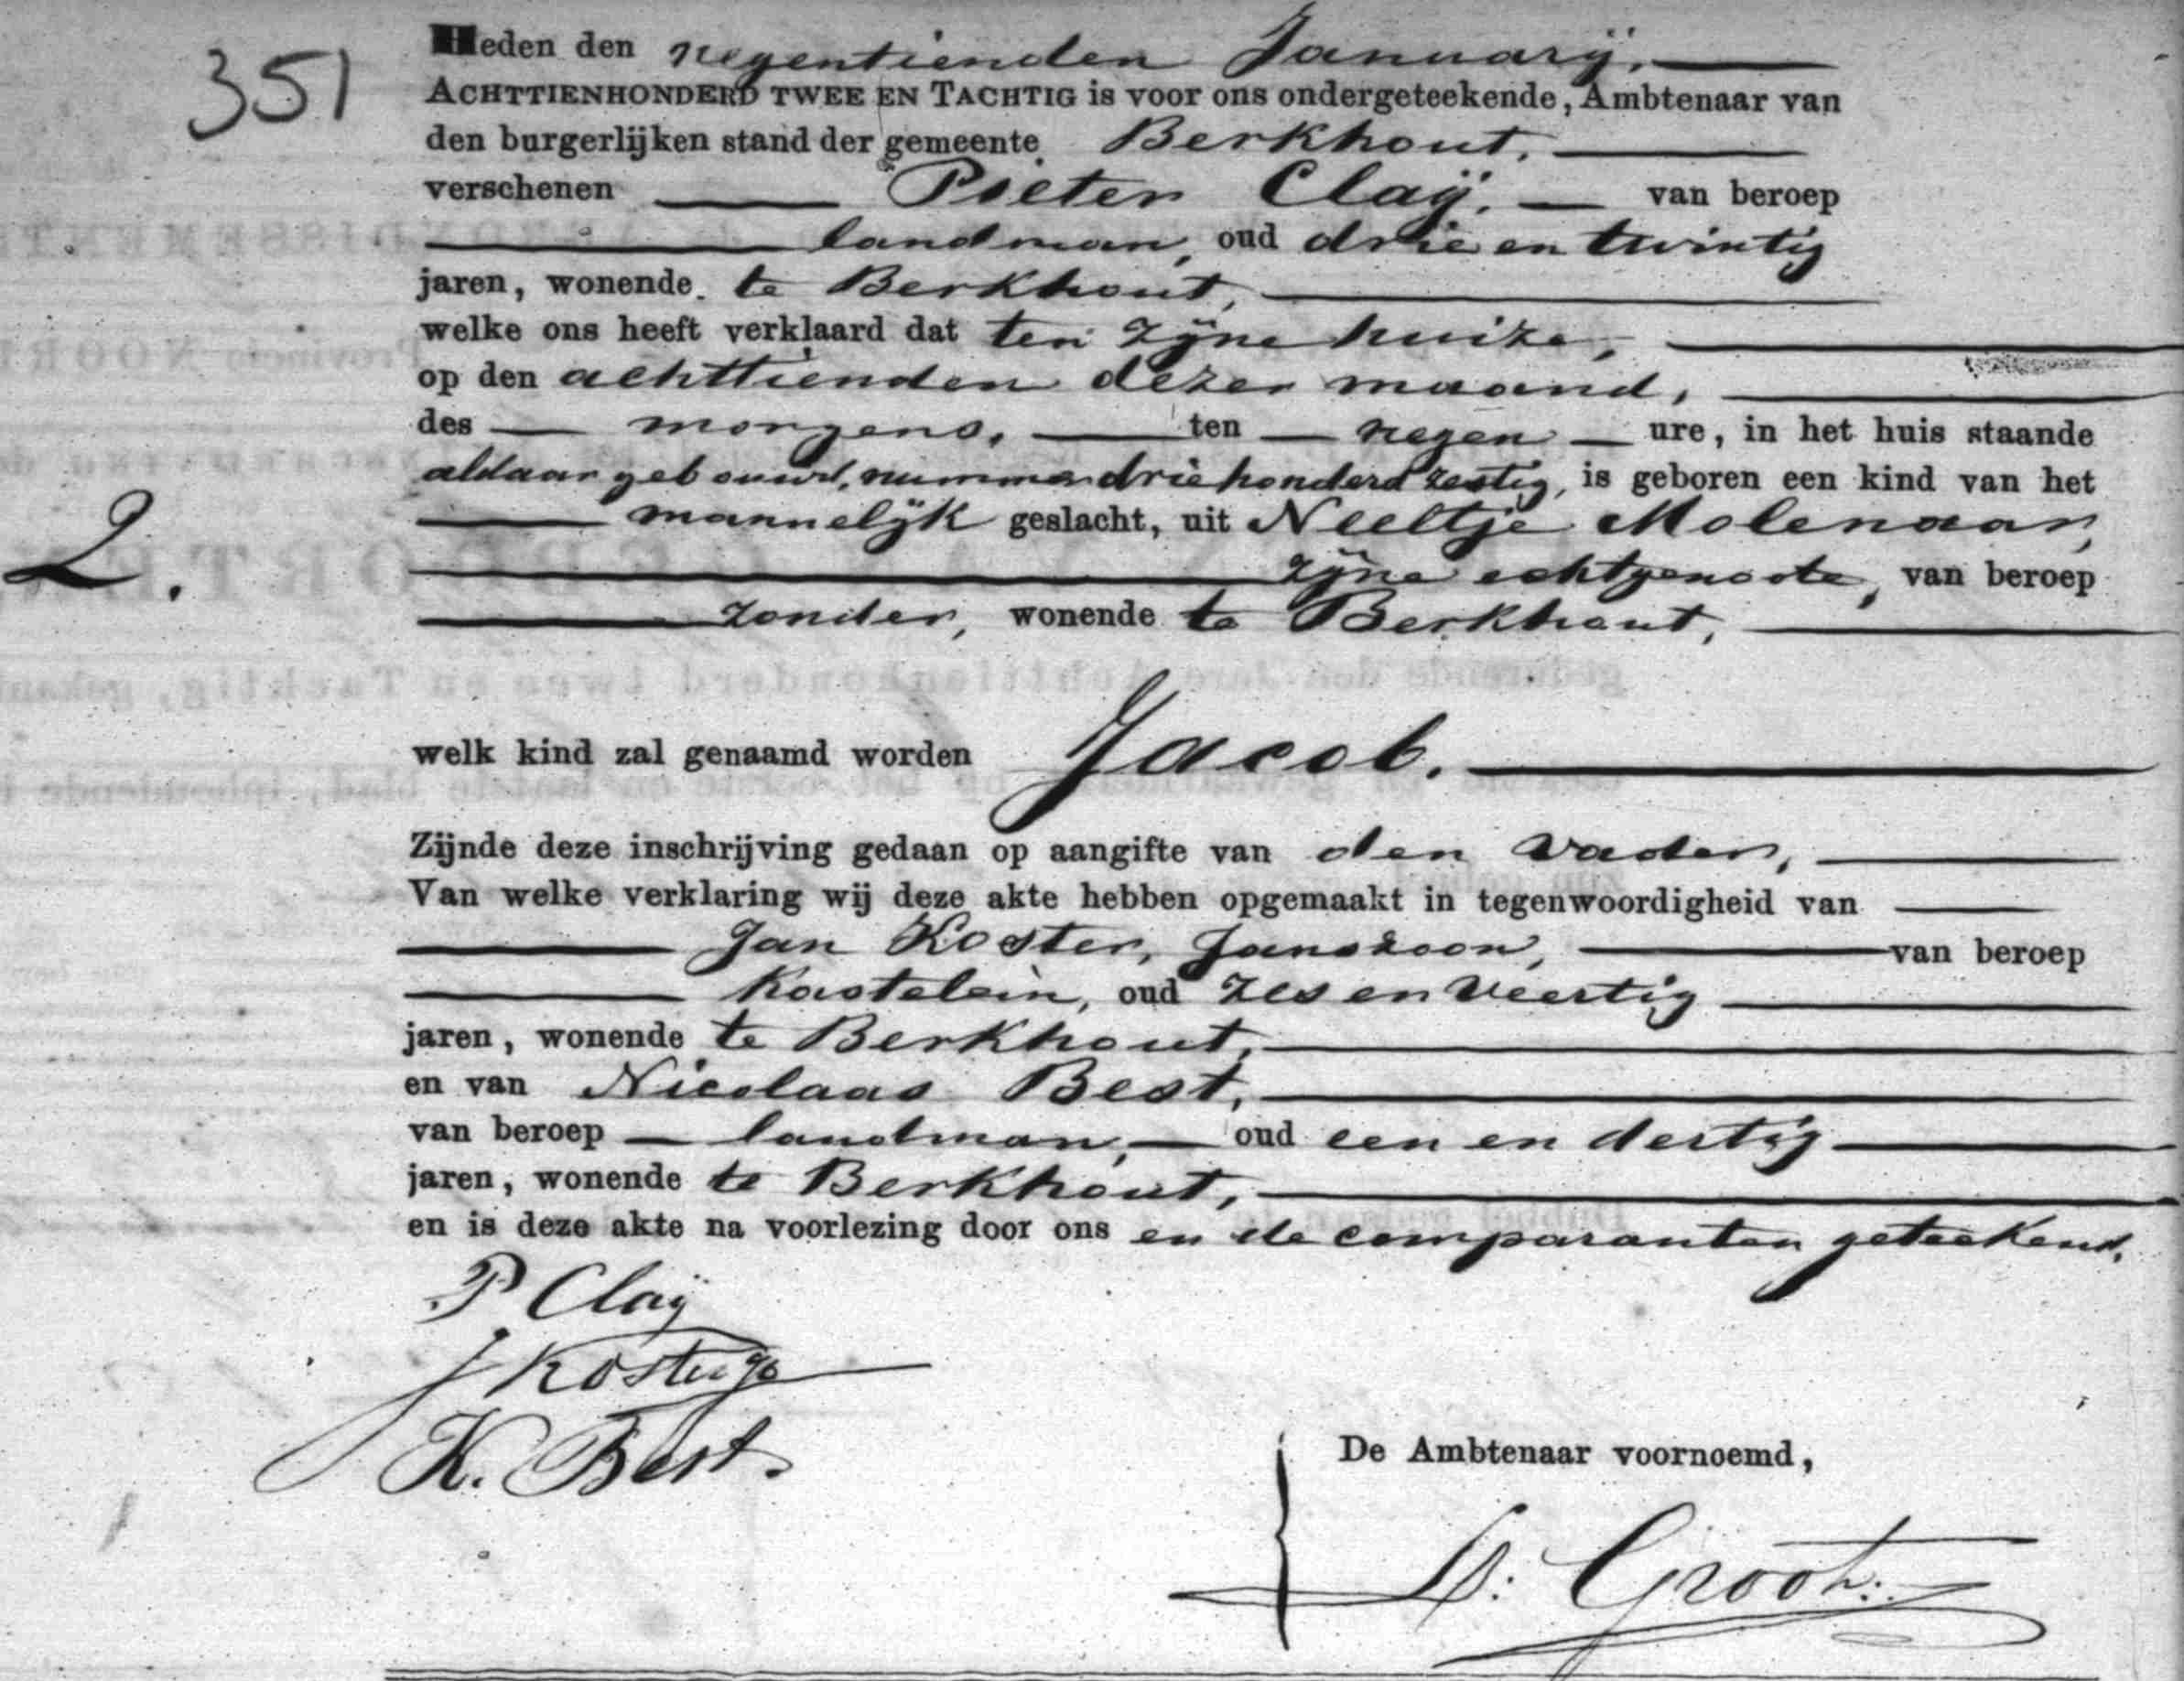 351
Heden den negentienden Januarij.
ACHTTIENHONDERD TWEE EN TACHTIG is voor ons ondergeteekende, Ambtenaar van
den burgerlijken stand der gemeente Berkhout,
verschenen Pieter Claij, van beroep
landman, oud drie en twintig
jaren, wonende te Berkhout,
welke ons heeft verklaard dat ten zijne huize,
op den achttienden dezer maand,
des morgens, ten negen ure, in het huis staande
aldaar gebouwd, nummer driehonderd zestig, is geboren een kind van het
2.
mannelijk geslacht, uit Neeltje Molenaar,
zijne echtgenoote, van beroep
zonder, wonende te Berkhout,
welk kind zal genaamd worden Jacob.
Zijnde deze inschrijving gedaan op aangifte van den Vader,
Van welke verklaring wij deze akte hebben opgemaakt in tegenwoordigheid van
Jan Koster, Janszoon, van beroep
Kastelein, oud zes en veertig
jaren, wonende te Berkhout,
en van Nicolaas Best,
van beroep landman, oud een en dertig
jaren, wonende te Berkhout,
en is deze akte na voorlezing door ons en de comparanten geteekend.
P Claij
J Koster
K. Best
De Ambtenaar voornoemd,
Groot